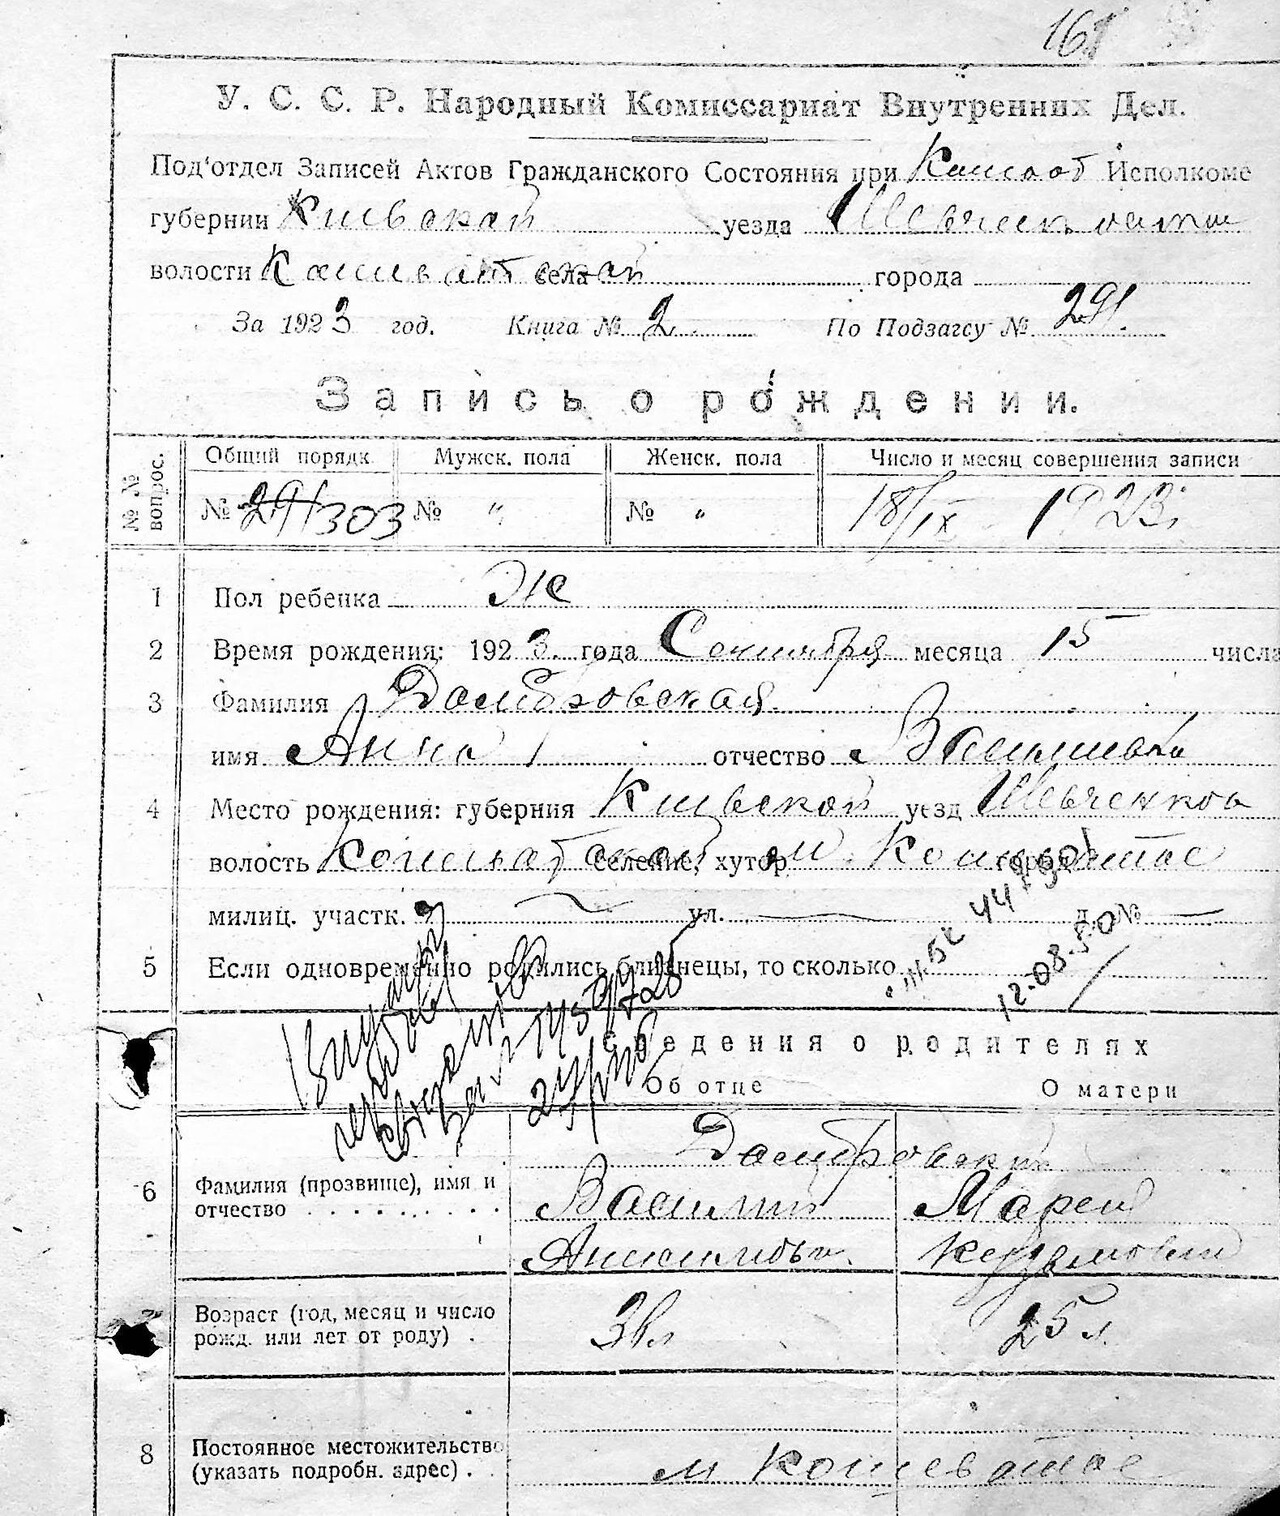 161
У. С. С. Р. Народный Комиссариат Внутренних Дел.
Под'отдел Записей Актов Гражданского Состояния при Исполкоме
губернии Киевской уезда Шевченковском
волости Кошеватской села города
За 1923 год. Книга № 2 По Подзагсу № 291.
Запись о рождении.
№ № вопрос. Общий порядк. Мужск. пола Женск. пола Число и месяц совершения записи
№ 291/303 № " № " 18/IX 1923.
1 Пол ребенка Ж
2 Время рождения: 1923. года Сентября месяца 15 числа
3 Фамилия Домбровская
имя Анна отчество Васильевна
4 Место рождения: губерния Киевской уезд Шевченков
волость Кошеватской селение, хутор м. Кошеватое город
милиц. участк. ул. д. №
5 Если одновременно родились близнецы, то сколько
12.08.50
Сведения о родителях
Об отце О матери
6 Фамилия (прозвище), имя и отчество Домбровский
Василий Мария
Кузьмовна
7 Возраст (год, месяц и число рожд. или лет от роду) 25 л.
8 Постоянное местожительство (указать подробн. адрес) м Кошеватое